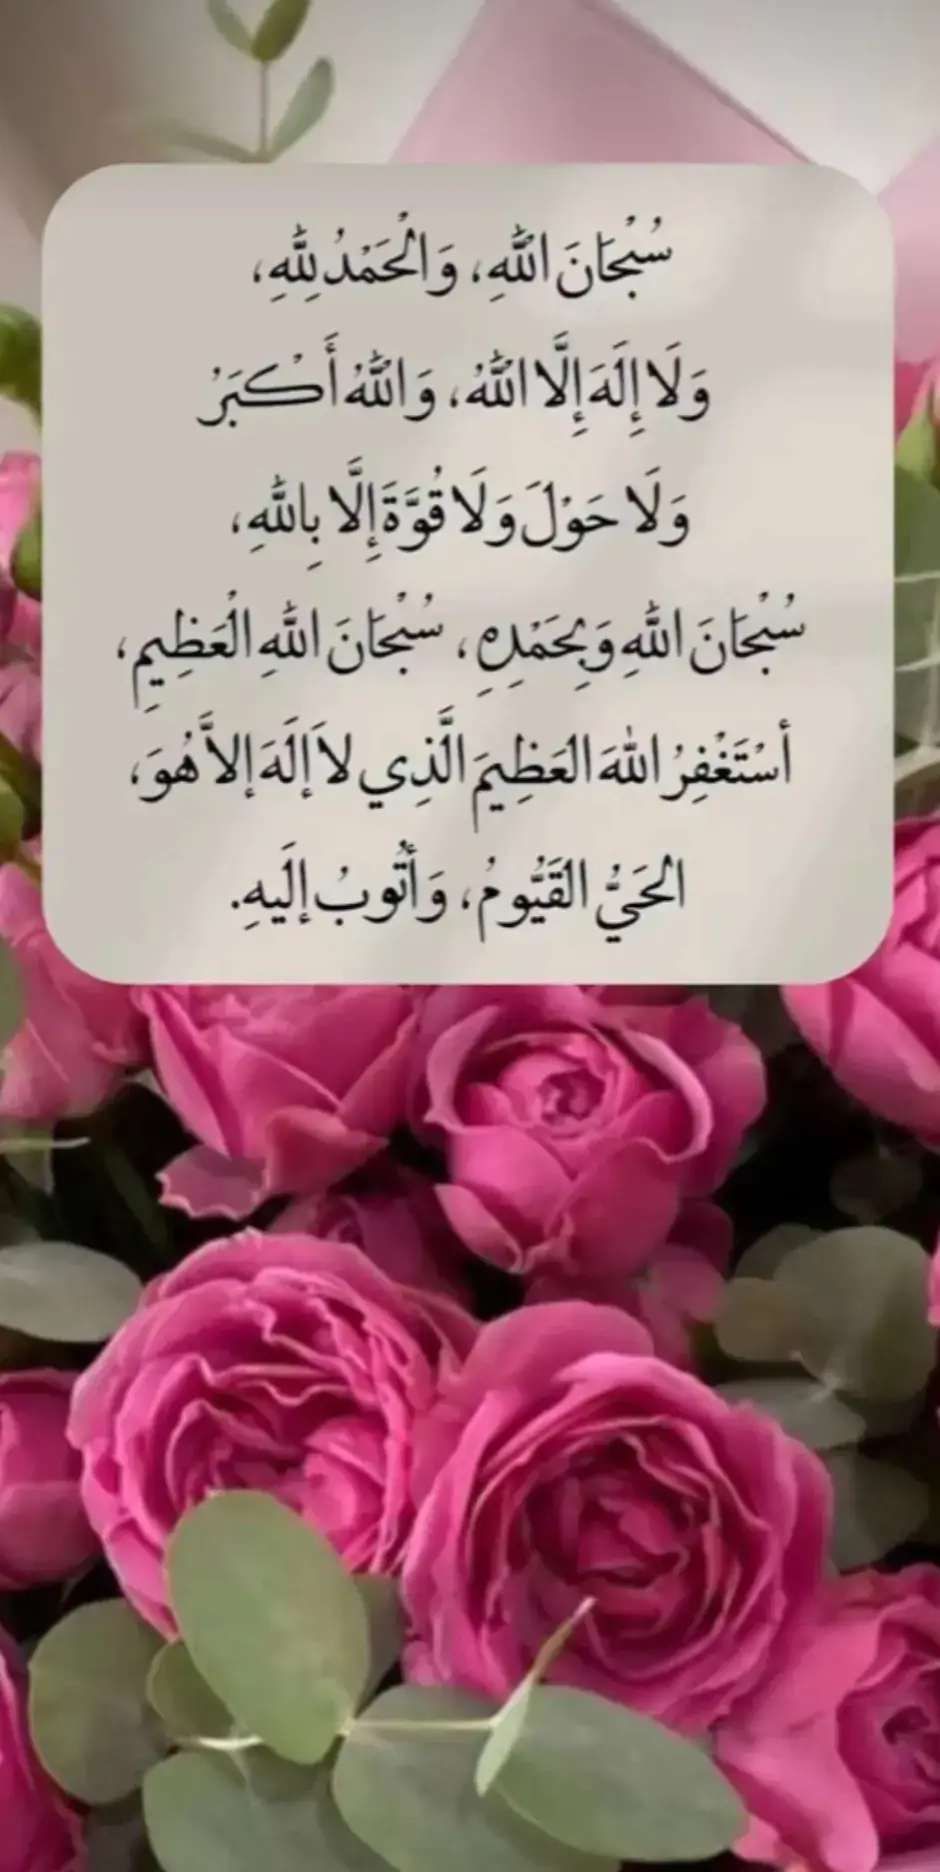 سُبْحَانَ اللَّهِ، وَالْحَمْدُ لِلَّهِ،
وَلَا إِلَهَ إِلَّا اللَّهُ، وَاللَّهُ أَكْبَرُ
وَلَا حَوْلَ وَلَا قُوَّةَ إِلَّا بِاللَّهِ،
سُبْحَانَ اللَّهِ وَبِحَمْدِهِ، سُبْحَانَ اللَّهِ الْعَظِيمِ،
أسْتَغْفِرُ اللهَ العَظِيمَ الَّذِي لاَ إلَهَ إلاَّ هُوَ،
الحَيُّ القَيُّومُ، وَأتُوبُ إلَيهِ.